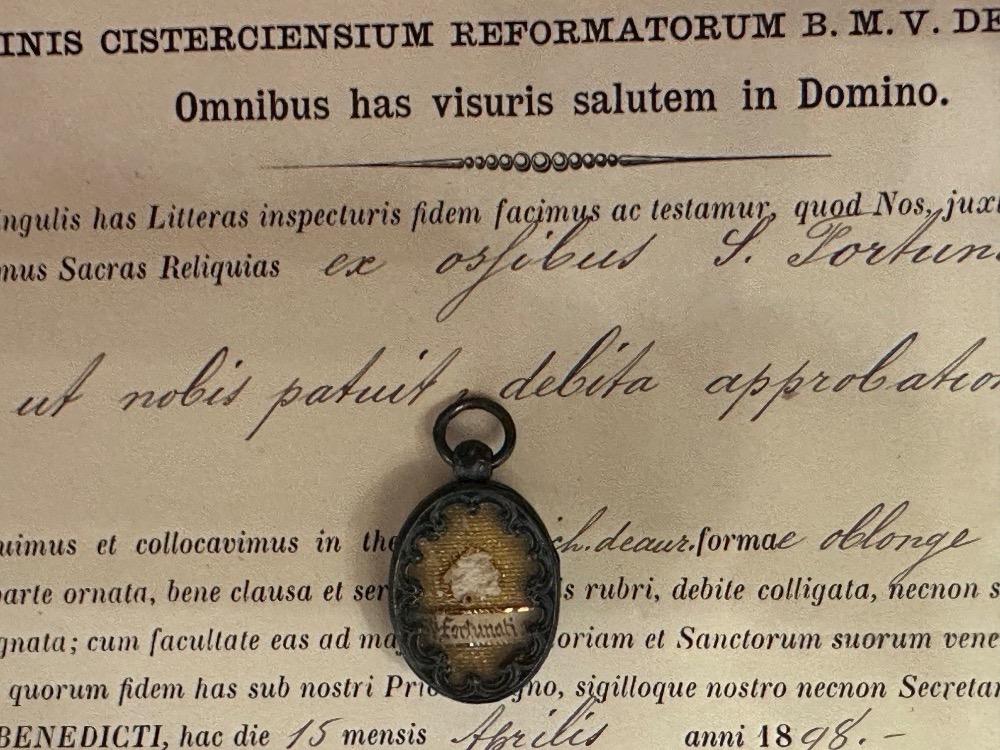 INIS CISTERCIENSIUM REFORMATORUM B. M. V. DE
Omnibus has visuris salutem in Domino.
ngulis has Litteras inspecturis fidem facimus ac testamur, quod Nos, juxt
mus Sacras Reliquias ex ossibus S. Fortun
ut nobis patuit, debita approbatio
uimus et collocavimus in the ch. deaur. formae oblonge
parte ornata, bene clausa et ser is rubri, debite colligata, necnon s
gnata; cum facultate eas ad ma oriam et Sanctorum suorum vene
Fortunati
quorum fidem has sub nostri Pri gno, sigilloque nostro necnon Secretar
BENEDICTI, hac die 15 mensis Aprilis anni 1898.-